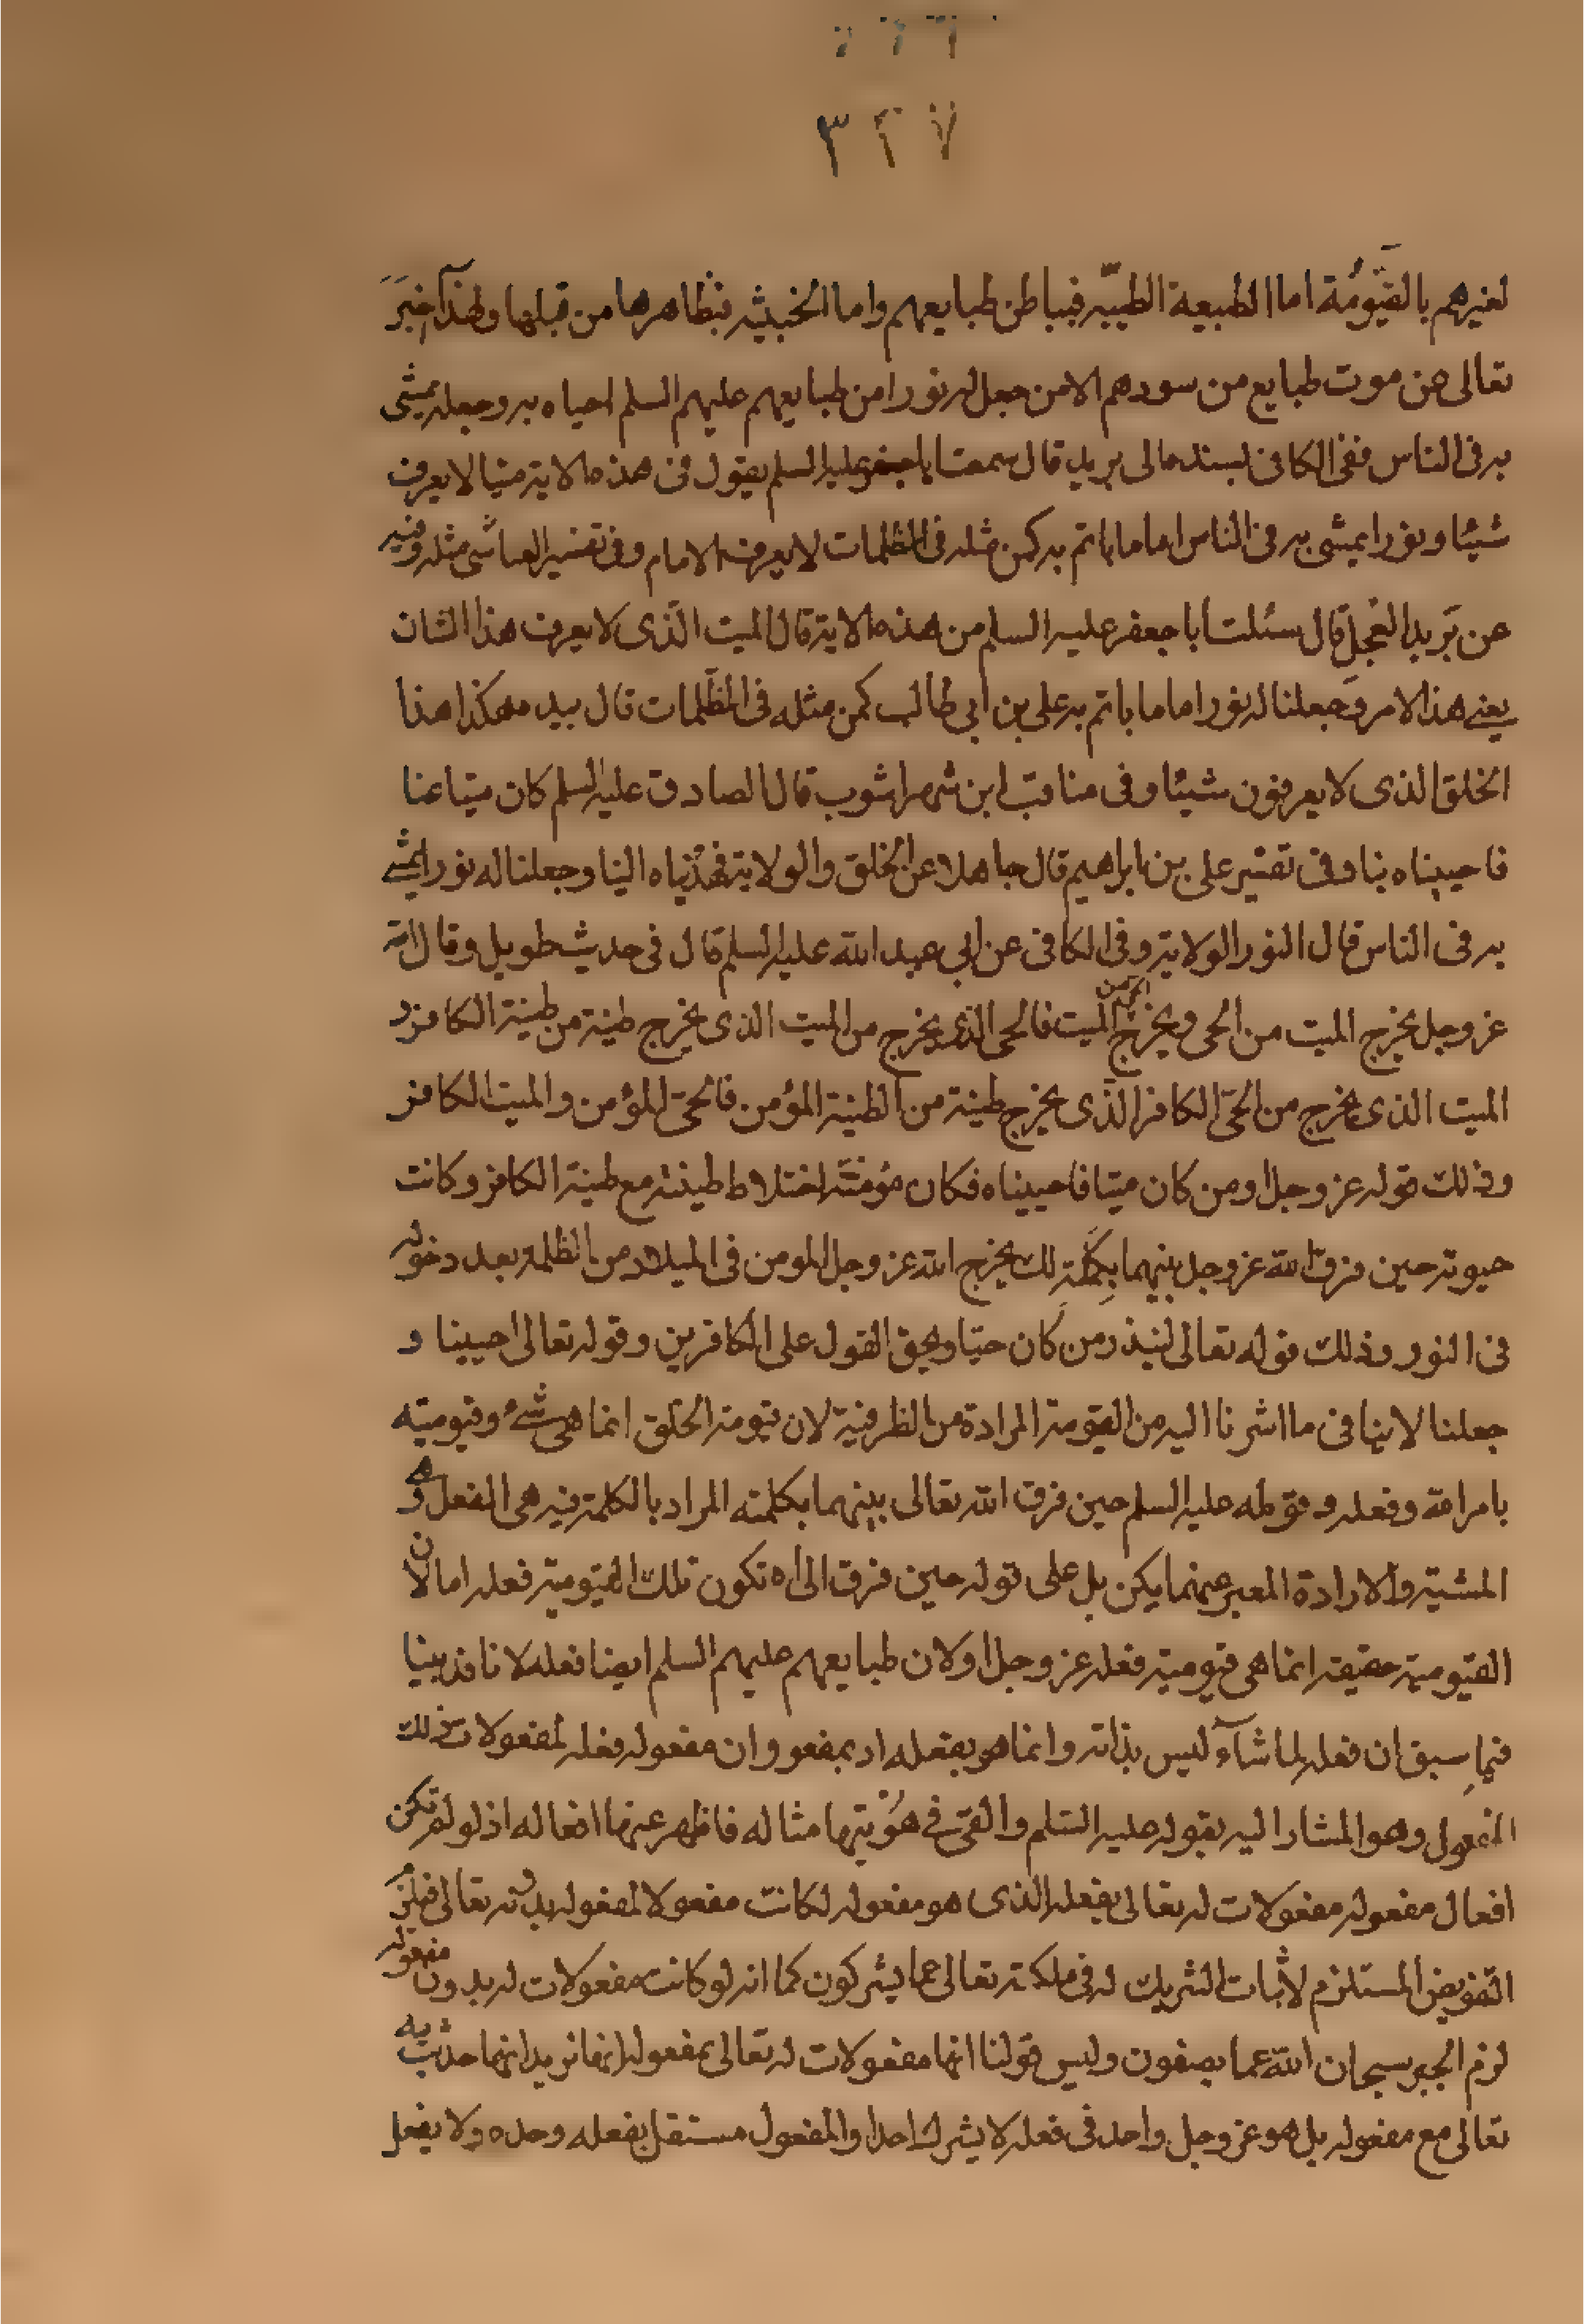 ٣٢٧
لغيرهم بالقيّوميّة اما الطبيعة الطيّبه فبباطن طبايعهم واما الخبيثه فبظاهرها من قبلها ولهذا اخبَرَ
تعالى عن موت طبايع من سودهم الا من جعل له نورا من طبايعهم عليهم السلم احياه به وجعله يمشى
به فى الناس ففى الكافى بسنده الى بريد قال سمعت ابا جعفر عليه السلم يقول فى هذه الاية ميتا لا يعرف
شيئا ونورا يمشى به فى الناس اماما ياتم به كمن مثله فى الظلمات لا يعرف الامام وفى تفسير العياشى مثله وفيه
عن بريد العجلى قال سئلت ابا جعفر عليه السلم من هذه الاية قال الميت الّذى لا يعرف هذا الشان
يعنى هذا الامر وجعلنا له نورا اماما ياتم به على بن ابى طالب كمن مثله فى الظلمات قال بيده هكذا هذا
الخلق الذى لا يعرفون شيئا وفى مناقب ابن شهراشوب قال الصادق عليه السلم كان ميتا عنا
فاحييناه بنا وفى تفسير على بن ابراهيم قال جاهلا عن الخلق والولاية فهديناه الينا وجعلنا له نورا يمشى
به فى الناس قال النور الولاية وفى الكافى عن ابى عبد الله عليه السلم قال فى حديث طويل وقال الله
عز وجل يخرج الميت من الحى ويخرج الحى من الميت فالحى الذى يخرج من الميت الذى يخرج طينة من طينة الكافر و
الميت الذى يخرج من الحىّ الكافر الّذى يخرج طينة من الطينة المؤمن فالحىّ المؤمن والميت الكافر
وذلك قوله عز وجل او من كان ميتا فاحييناه فكان موته اختلاط طينته مع طينة الكافر وكانت
حيوته حين فرق الله عز وجل بينهما بكلمته كذلك يخرج الله عز وجل المومن فى الميلاد من الظلمة بعد دخوله
فى النور وذلك قوله تعالى لينذر من كان حيّا ويحق القول على الكافرين وقوله تعالى احيينا و
جعلنا لا ينافى ما اشرنا اليه من القيومة المرادة من الظرفية لان قيومة الخلق انما هى شىء وقيوميته
بامر الله وفعله وقوله عليه السلم حين فرق الله تعالى بينهما بكلمته المراد بالكلمة فيه هى الفعل وهى
المشية والارادة المعبر عنهما بكن بل على قوله حين فرق الى اه تكون تلك القيومية فعله اما لان
القيومية حقيقة انما هى قيومية فعله عز وجل او لان طبايعهم عليهم السلم ايضا فعله لانا قد بينا
فيما سبق ان فعله لما شآء ليس بذاته وانما هو بفعله او بمفعو وان مفعوله فعله لمفعولات ذلك
المفعول وهو المشار اليه بقوله عليه السّلم والقى فى هُويّتها مثاله فاظهر عنها افعاله اذ لو لم تكن
افعال مفعوله مفعولات له تعالى بفعله الذى هو مفعوله لكانت مفعولا لمفعوله بدونه تعالى فيلزم
التفويض المستلزم لاثبات الشريك له فى ملكه تعالى عما يشركون كما انه لو كانت مفعولات له بدون مفعوله
لزم الجبر سبحان الله عما يصفون وليس قولنا انها مفعولات له تعالى بمفعوله انما نريد انها حدثت به
تعالى مع مفعوله بل هو عز وجل واحد فى فعله لا يشرك احدا والمفعول مستقل بفعله وحده ولا يفعل